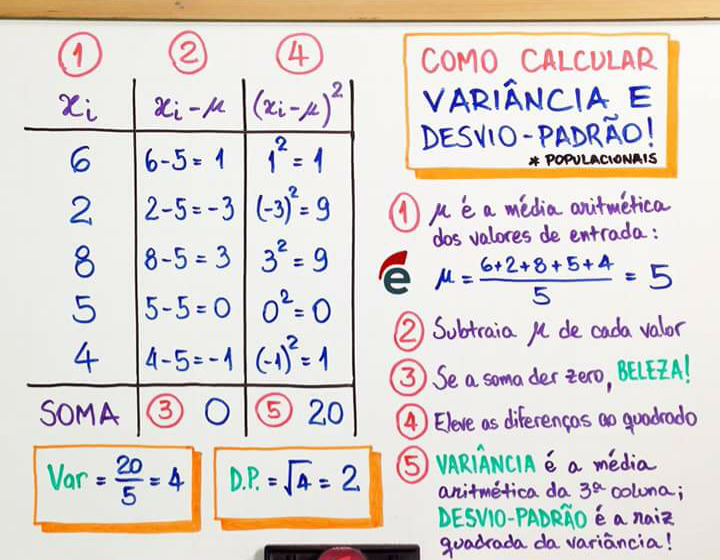 ① ② ④
xᵢ xᵢ-μ (xᵢ-μ)²
6 6-5=1 1²=1
2 2-5=-3 (-3)²=9
8 8-5=3 3²=9
5 5-5=0 0²=0
4 4-5=-1 (-1)²=1
SOMA ③ 0 ⑤ 20
Var = 20/5 = 4
D.P. = √4 = 2
COMO CALCULAR
VARIÂNCIA E
DESVIO-PADRÃO!
* POPULACIONAIS
① μ é a média aritmética
dos valores de entrada:
e μ = (6+2+8+5+4)/5 = 5
② Subtraia μ de cada valor
③ Se a soma der zero, BELEZA!
④ Eleve as diferenças ao quadrado
⑤ VARIÂNCIA é a média
aritmética da 3ª coluna;
DESVIO-PADRÃO é a raiz
quadrada da variância!